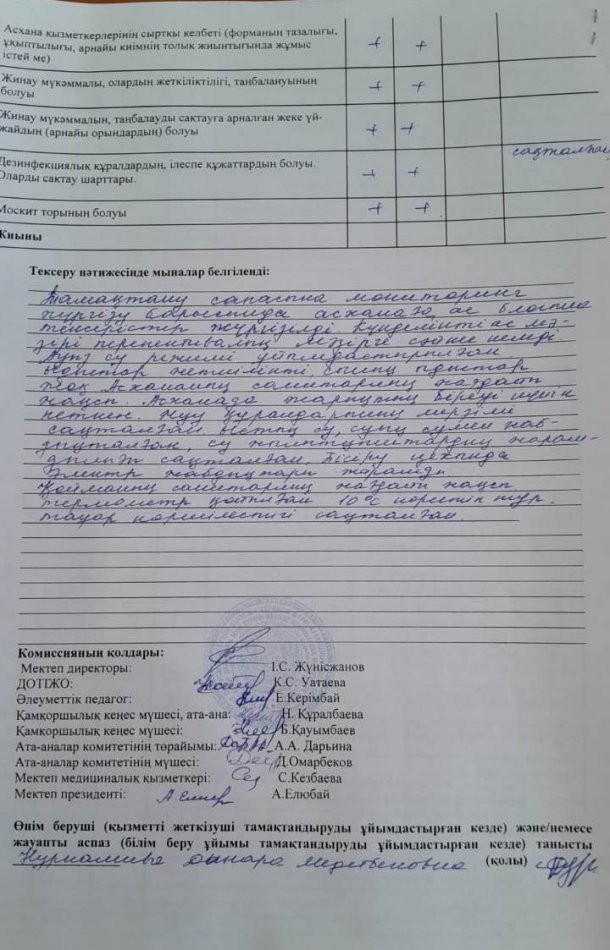 Асхана қызметкерлерінің сыртқы келбеті (форманың тазалығы,
ұқыптылығы, арнайы киімнің толық жиынтығында жұмыс
істей ме)
+ +
Жинау мүкәммалы, олардың жеткіліктілігі, таңбалануының
болуы
+ +
Жинау мүкәммалын, таңбалауды сақтауға арналған жеке үй-
жайдың (арнайы орындардың) болуы
+ +
Дезинфекциялық құралдардың, ілеспе құжаттардың болуы.
Оларды сақтау шарттары.
+ + сақталған
Москит торының болуы
+ +
Қиыны
Тексеру нәтижесінде мыналар белгіленді:
Тамақтану сапасына мониторинг
жүргізу барысында асханаға, ас блогына
тексерістер жүргізілді. Күнделікті ас мә-
зірі перспективалық мәзірге сәйкес келеді.
Ауыз су режимі ұйымдастырылған.
Ыдыстар жеткілікті, сынық ыдыстар
жоқ. Асхананың санитарлық жағдайы
жақсы. Асханада жарықтың берілуі
кеткен. Жуу құралдарының мерзімі
сақталған. Ыстық су, суық сумен жаб-
дықталған, су жылытқыштардың жарам-
дылығы сақталған. Пісіру цехында
Электр жабдықтары жарамды
Қойманың санитарлық жағдайы жақсы
термометр қойылған 10°C көрсетіп тұр.
тауар көршілестігі сақталған.
Комиссияның қолдары:
Мектеп директоры: І.С. Жүнісжанов
ДОТІЖО: К.С. Уатаева
Әлеуметтік педагог: Е.Керімбай
Қамқоршылық кеңес мүшесі, ата-ана: Н. Құралбаева
Қамқоршылық кеңес мүшесі: Б.Қауымбаев
Ата-аналар комитетінің төрайымы: А.А. Дарьина
Ата-аналар комитетінің мүшесі: Д.Омарбеков
Мектеп медициналық қызметкері: С.Кезбаева
Мектеп президенті: А.Елюбай
Өнім беруші (қызметті жеткізуші тамақтандыруды ұйымдастырған кезде) және/немесе
жауапты аспаз (білім беру ұйымы тамақтандыруды ұйымдастырған кезде) танысты
Динара (қолы)